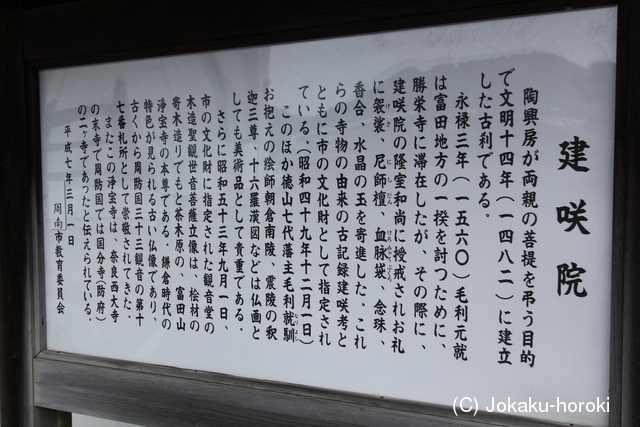 建咲院
陶興房が両親の菩提を弔う目的
で文明十四年（一四八二）に建立
した古刹である。
永禄三年（一五六〇）毛利元就
は富田地方の一揆を討つために、
勝栄寺に滞在したが、その際に、
建咲院の隆室和尚に授戒されお礼
に袈裟、尼師壇、血脉袋、念珠、
香合、水晶の玉を寄進した。これ
らの寺物の由来の古記録建咲考と
ともに市の文化財として指定され
ている（昭和四十九年十二月一日）
このほか徳山七代藩主毛利就馴
お抱えの絵師朝倉南陵、震陵の釈
迦三尊、十六羅漢図などは仏画と
しても美術品として貴重である。
さらに昭和五十三年九月一日、
市の文化財に指定された観音堂の
木造聖観世音菩薩立像は、桧材の
寄木造りでもと茶木原の、富田山
浄宝寺の本尊である。鎌倉時代の
特色が見られる古い仏像であり、
古くから周防国三十三観音の第十
七番札所として崇敬されてきた。
またこの浄宝寺は、奈良西大寺
の末寺で周防国では国分寺（防府）
の二ヶ寺であったと伝えられている。
平成七年三月一日
周南市教育委員会
(C) Jokaku-horoki